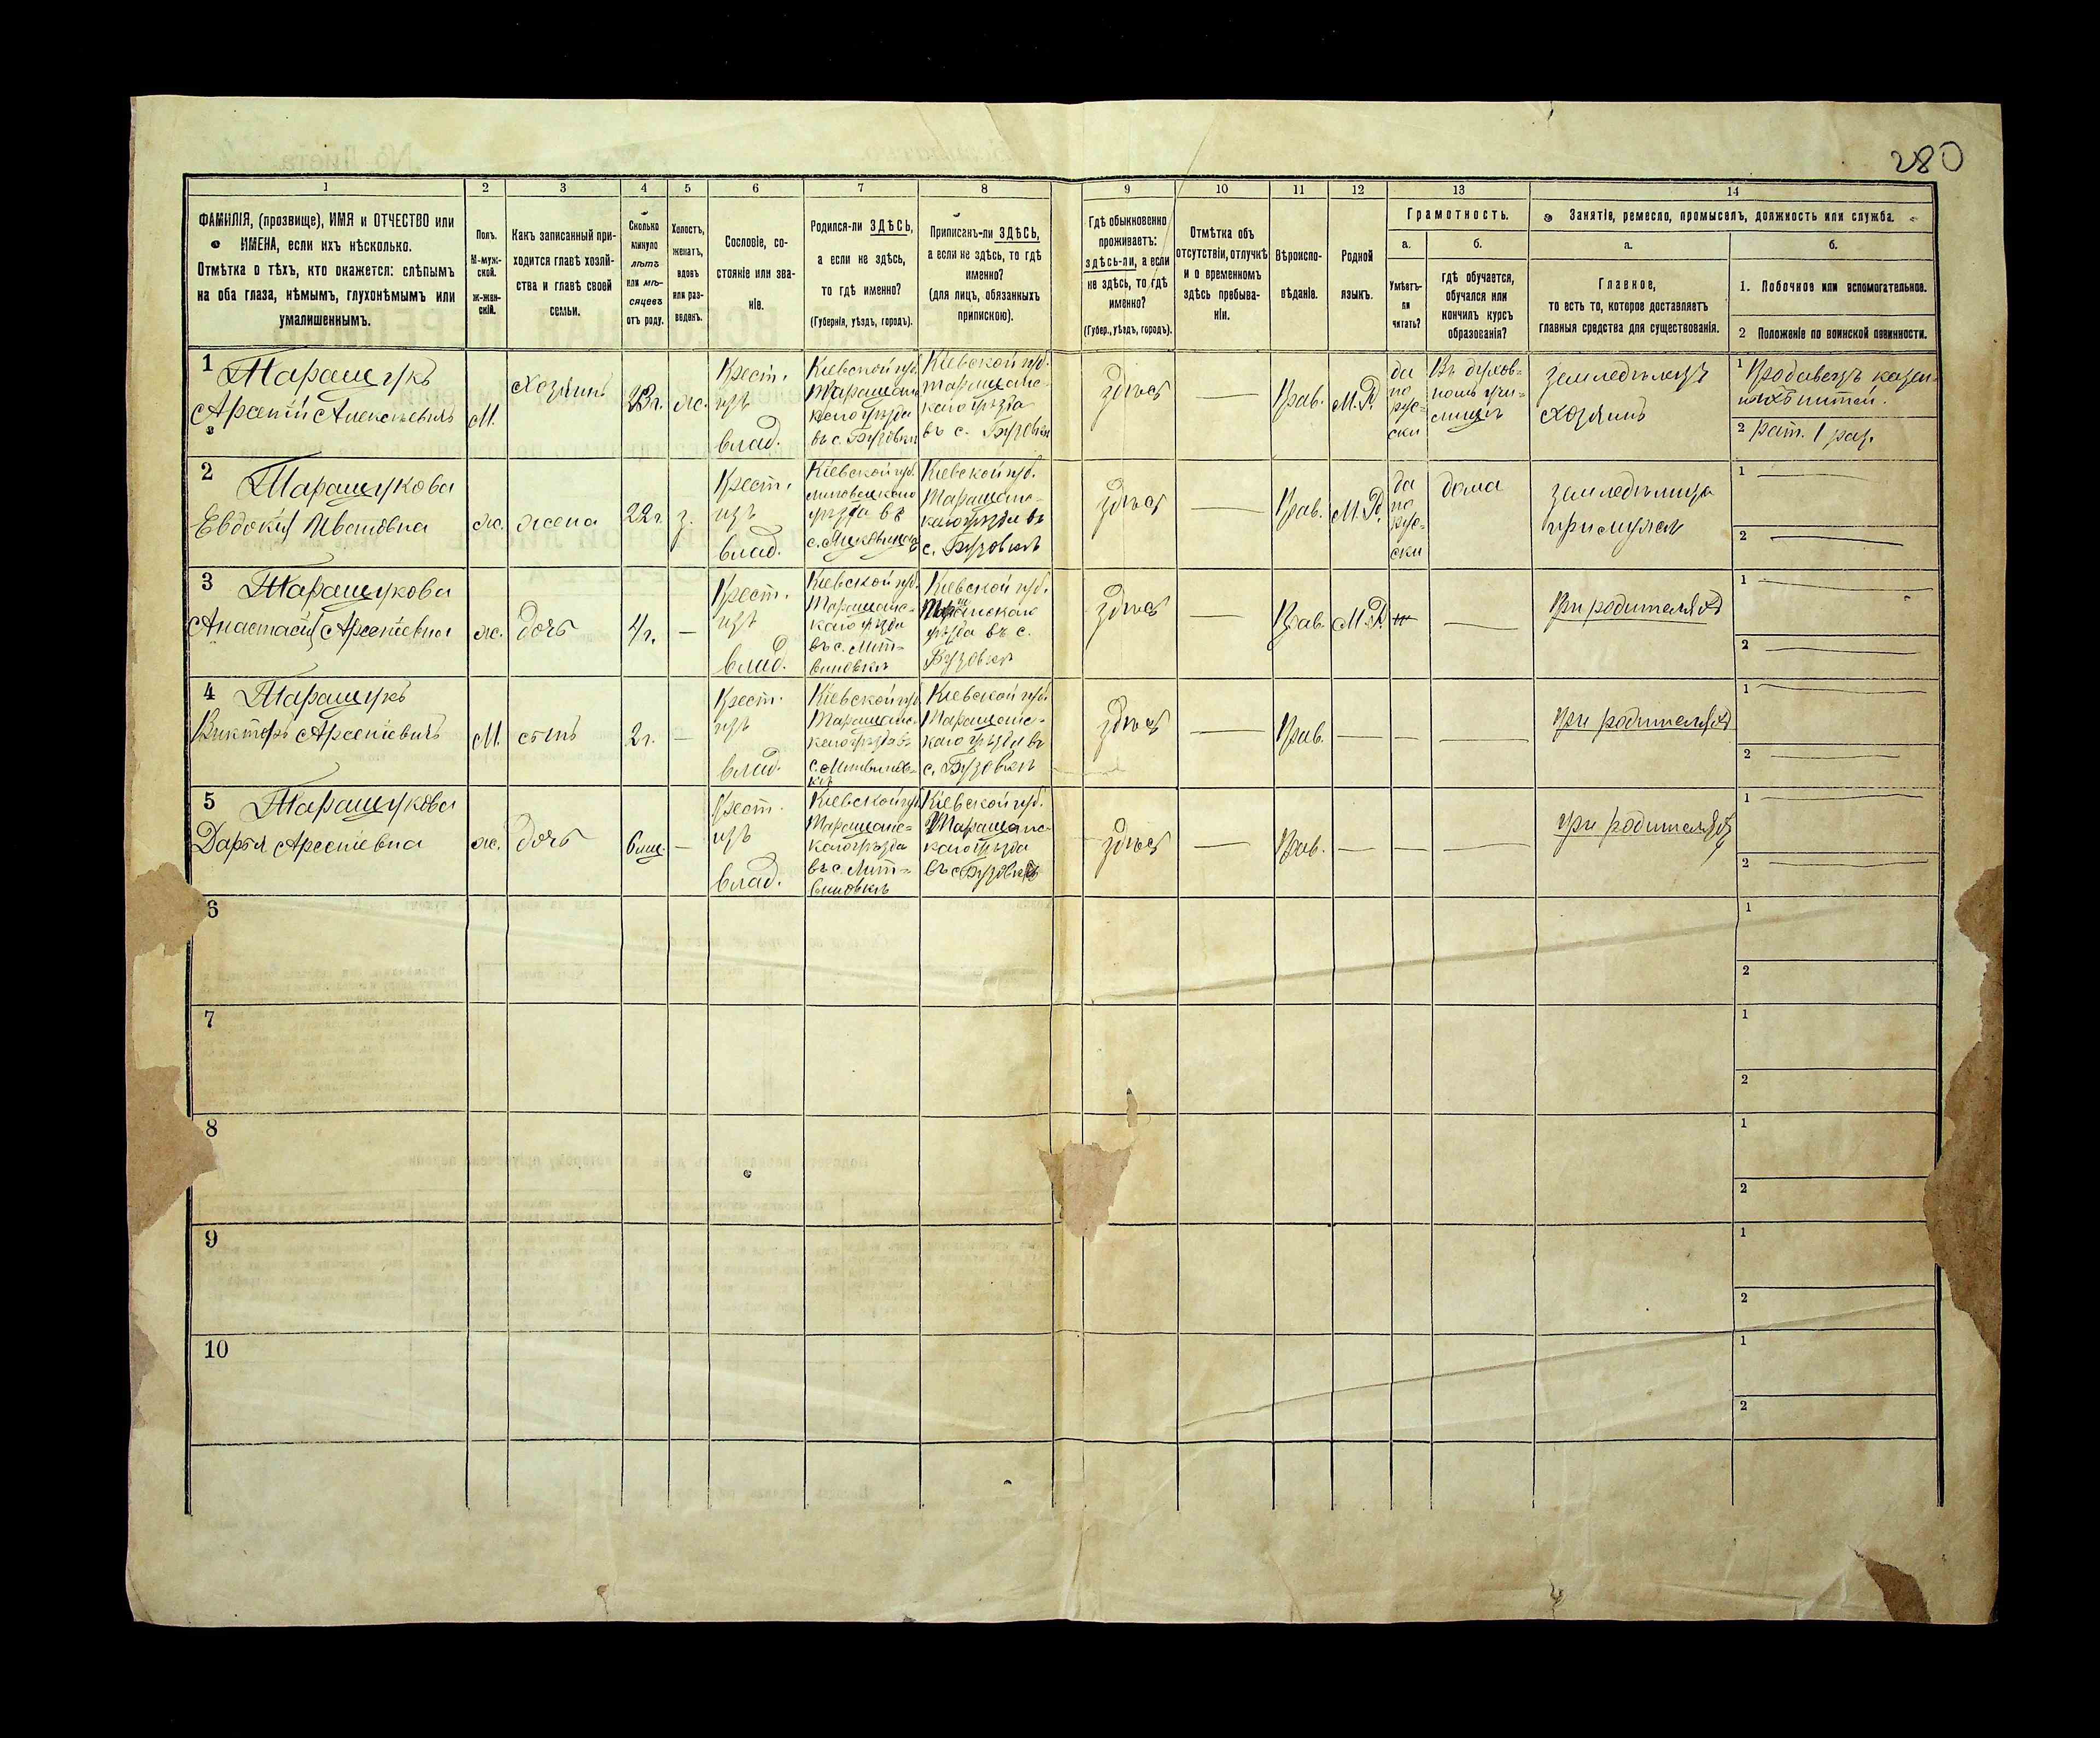 280
1
2
3
4
5
6
7
8
9
10
11
12
13
14
ФАМИЛІЯ, (прозвище), ИМЯ и ОТЧЕСТВО или
ИМЕНА, если ихъ нѣсколько.
Отмѣтка о тѣхъ, кто окажется: слѣпымъ
на оба глаза, нѣмымъ, глухонѣмымъ или
умалишеннымъ.
Полъ.
М-муж-
ской.
ж-жен-
скій.
Какъ записанный при-
ходится главѣ хозяй-
ства и главѣ своей
семьи.
Сколько
минуло
лѣтъ
или мѣ-
сяцевъ
отъ роду.
Холостъ,
женатъ,
вдовъ
или раз-
веденъ.
Сословіе, со-
стояніе или зва-
ніе.
Родился-ли ЗДѢСЬ,
а если не здѣсь,
то гдѣ именно?
(Губернія, уѣздъ, городъ).
Приписанъ-ли ЗДѢСЬ,
а если не здѣсь, то гдѣ
именно?
(для лицъ, обязанныхъ
припискою).
Гдѣ обыкновенно
проживаетъ:
здѣсь-ли, а если
не здѣсь, то гдѣ
именно?
(Губер., уѣздъ, городъ).
Отмѣтка объ
отсутствіи, отлучкѣ
и о временномъ
здѣсь пребыва-
ніи.
Вѣроиспо-
вѣданіе.
Родной
языкъ.
Грамотность.
а.
Умѣетъ-
ли
читать?
б.
гдѣ обучается,
обучался или
кончилъ курсъ
образованія?
Занятія, ремесло, промыселъ, должность или служба.
а.
Главное,
то есть то, которое доставляетъ
главныя средства для существованія.
б.
1. Побочное или вспомогательное.
2 Положеніе по воинской повинности.
1 Таращукъ
Арсеній Алексѣевичъ
М.
Хозяинъ
ж.
Крест.
изъ
влад.
Кіевской губ.
Таращанс
каго уѣзда
въ с. Бузовки
Кіевской губ.
Таращанс-
каго уѣзда
въ с. Бузовки
здѣсь
Прав.
М. Р.
да
по
рус-
ски
Въ духов-
номъ учи-
лищѣ
земледѣлецъ
хозяинъ
1 Продавецъ казен-
ныхъ питей.
2 рат. 1 раз.
2 Таращукова
Евдокія Ивановна
ж.
жена
22 г.
з.
Крест.
изъ
влад.
Кіевской губ.
Липовецкаго
уѣзда въ
Кіевской губ.
Таращанс-
каго уѣзда въ
с. Бузовкѣ
здѣсь
Прав.
М. Р.
да
по
рус-
ски
дома
земледѣлица
при мужѣ
1
2
3 Таращукова
Анастасія Арсеніевна
ж.
дочь
4 г.
Крест.
изъ
влад.
Кіевской губ.
Таращанс-
каго уѣзда
въ с. Лит-
виновкѣ
Кіевской губ.
уѣзда въ с.
Бузовкѣ
здѣсь
Прав.
М. Р.
при родителяхъ
1
2
4 Таращукъ
Викторъ Арсеніевичъ
М.
сынъ
2 г.
Крест.
изъ
влад.
Кіевской губ.
Таращанс-
каго уѣзда въ
с. Литвинов-
кѣ
Кіевской губ.
Таращанс-
каго уѣзда въ
с. Бузовкѣ
здѣсь
Прав.
при родителяхъ
1
2
5 Таращукова
Дарья Арсеніевна
ж.
дочь
6 мц.
Крест.
изъ
влад.
Кіевской губ.
Таращанс-
каго уѣзда
въ с. Лит-
виновкѣ
Кіевской губ.
Таращанс-
каго уѣзда
въ с. Бузовкѣ
здѣсь
Прав.
при родителяхъ
1
2
6
1
2
7
1
2
8
1
2
9
1
2
10
1
2